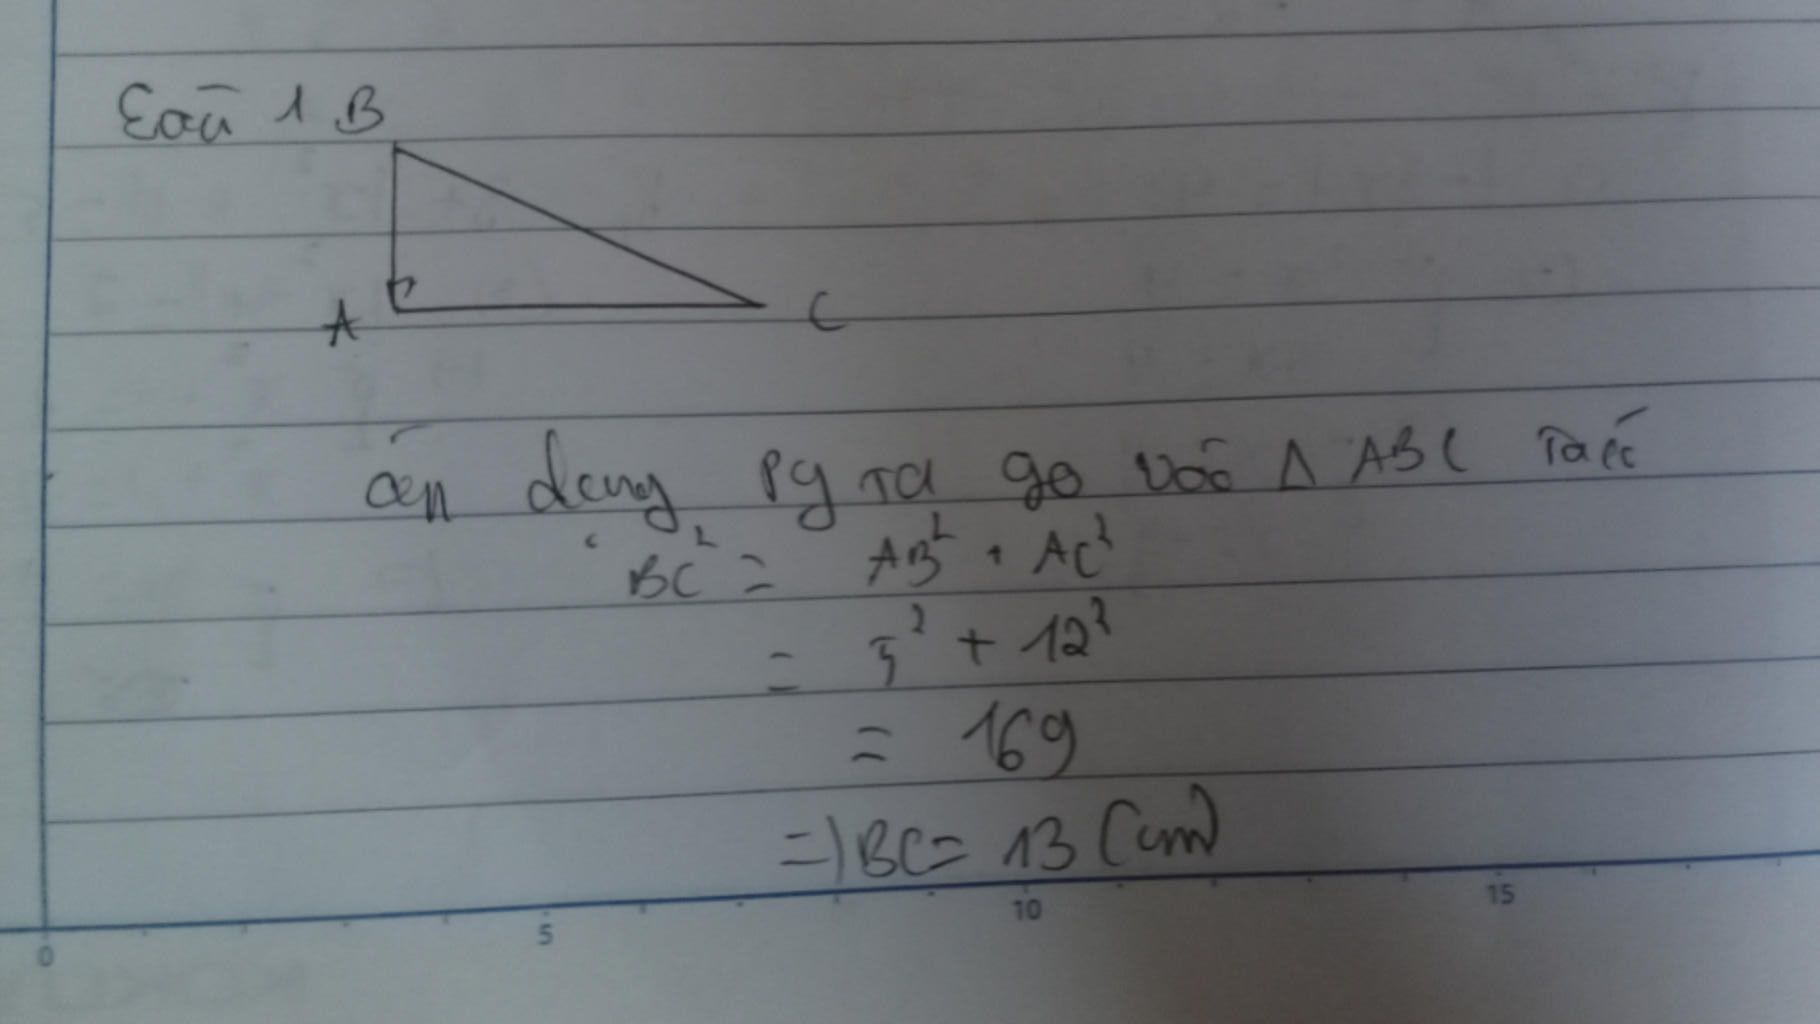 Câu 1 B
A C
áp dụng Py ta go vào Δ ABC Ta có
BC² = AB² + AC²
= 5² + 12²
= 169
=) BC = 13 (cm)
0 5 10 15